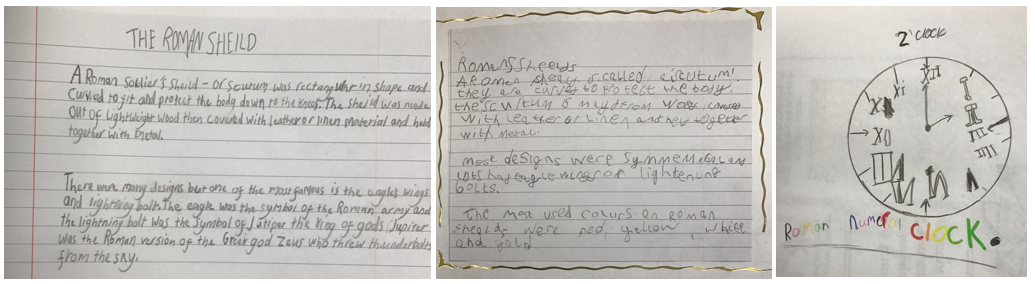 THE ROMAN SHEILD
A Roman Soldier's Sheild - or Scutum was rectangular in shape and
Curved to fit and protect the body down to the knees. The Sheild was made
out of Lightweight wood then Covered with leather or linen material and held
together with metal.
There were many designs but one of the most famous is the eagles wings
and lightning bolt. The eagle was the symbol of the Roman army and
the lightning bolt was the Symbol of Jutiper the King of gods. Jupiter
was the Roman version of the Greek god Zeus who threw thunderbolts
from the sky.
A Roman is called a 'scutum'.
they are curved to protect the body.
the from
with leather or linen and together
with metal.
most designs were
lots had eagle wings or lightening
bolts.
The most used colours on Roman
Sheilds were red, yellow, white
and gold
2' clock
XII
XI
I
II
III
IIII
Roman Numeral CLOCK.